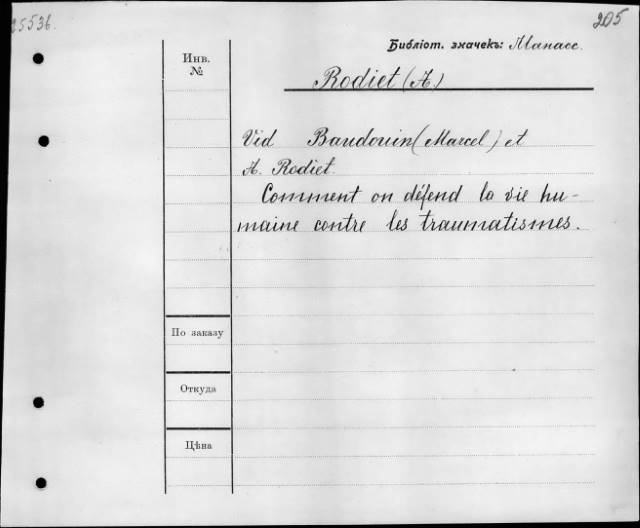 25536.
205
Библіот. значекъ: Манасс.
Инв.
№
Rodiet (A.)
Vid Baudouin (Marcel) et
A. Rodiet.
Comment on défend la vie hu-
maine contre les traumatismes.
По заказу
Откуда
Цѣна